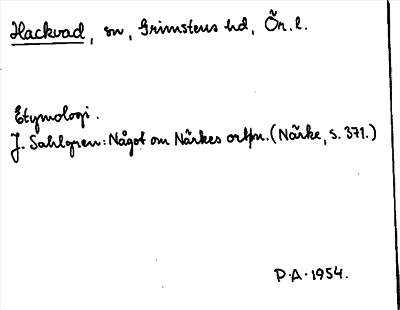 Hackvad, sn, Grimstens hd, Ör. l.
Etymologi.
J. Sahlgren: Något om Närkes ortn. (Närke, s. 371.)
P.A. 1954.